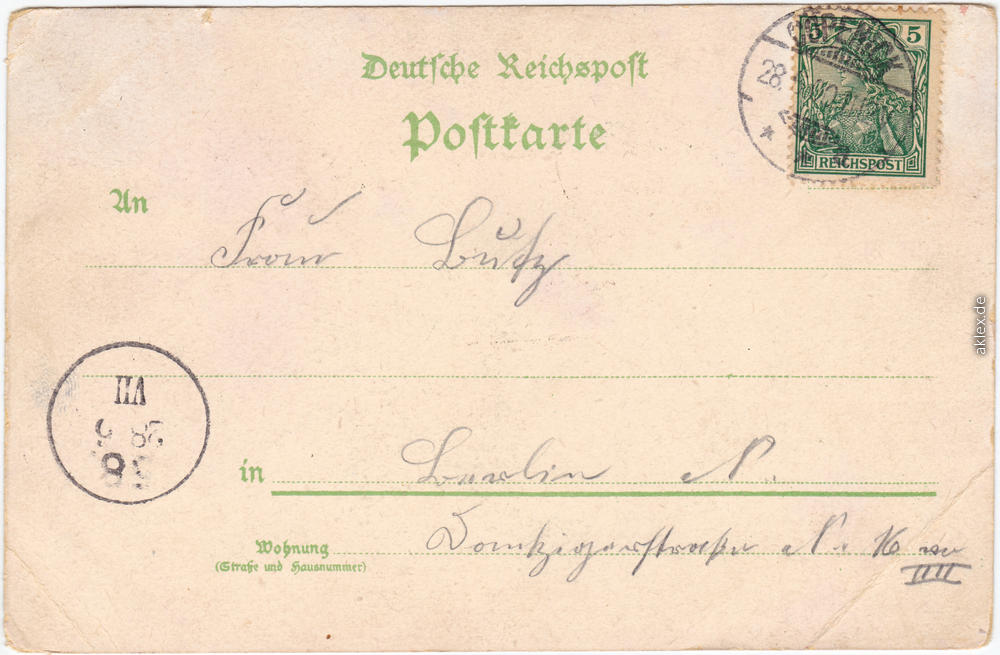 Deutsche Reichspost
Postkarte
5 5
REICHSPOST
CÖPENICK
28.
An
Frau Butz
aklex.de
VII
28 6
8.
in Berlin N.
Wohnung Danzigerstraße N. 16
(Straße und Hausnummer)
IIII